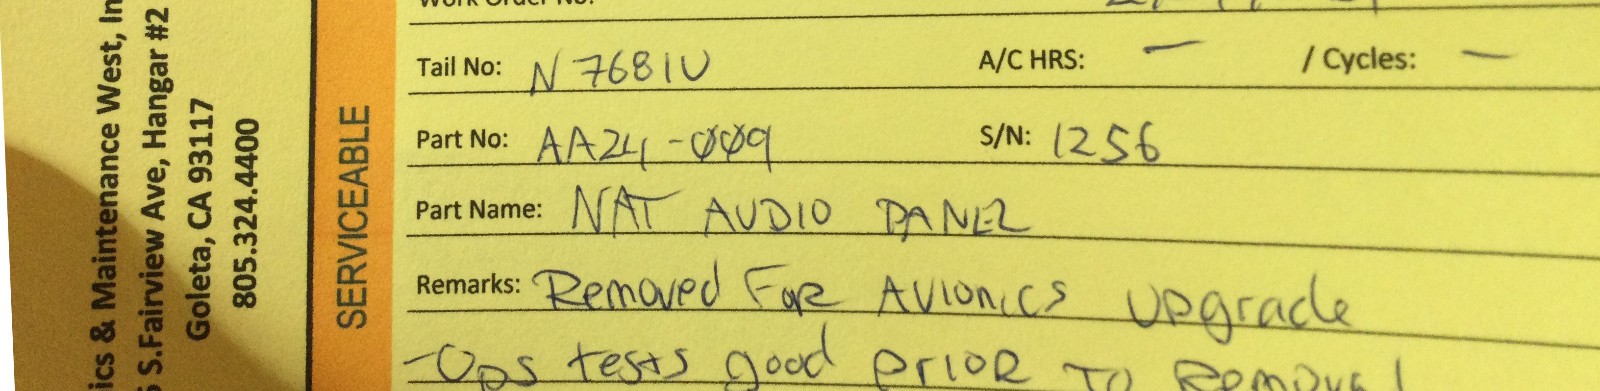 ics & Maintenance West, In
S.Fairview Ave, Hangar #2
Goleta, CA 93117
805.324.4400
SERVICEABLE
Work Order No:
Tail No: N7681U A/C HRS: — / Cycles: —
Part No: AA24-009 S/N: 1256
Part Name: NAT AUDIO PANEL
Remarks: Removed For Avionics upgrade
-Ops tests good prior to Removal